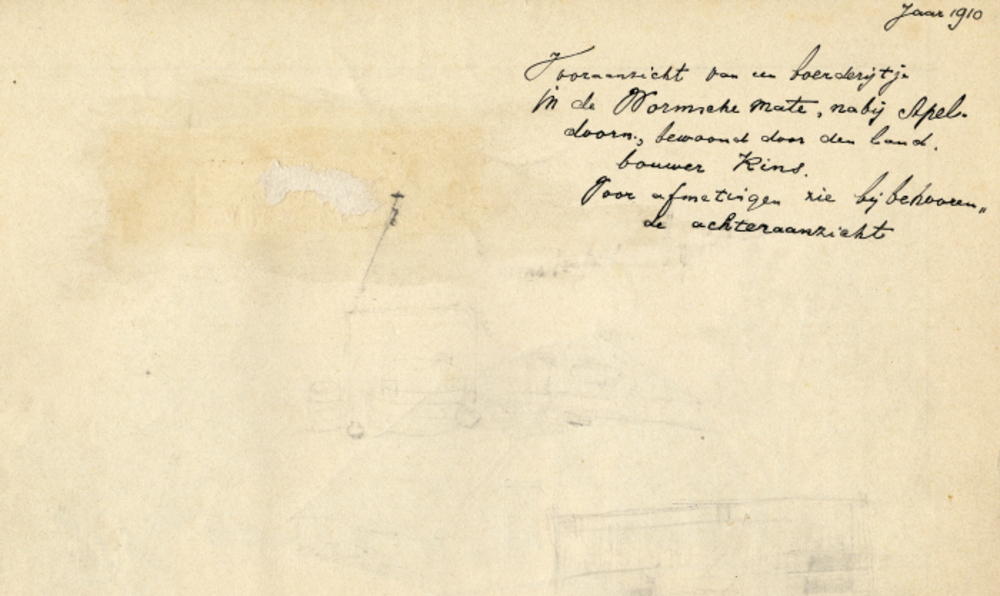 Jaar 1910
Vooraanzicht van een boerderijtje
in de Wormsche mate, nabij Apel-
doorn, bewoond door den land-
bouwer Kins.
Voor afmetingen zie bijbehooren„
de achteraanzicht